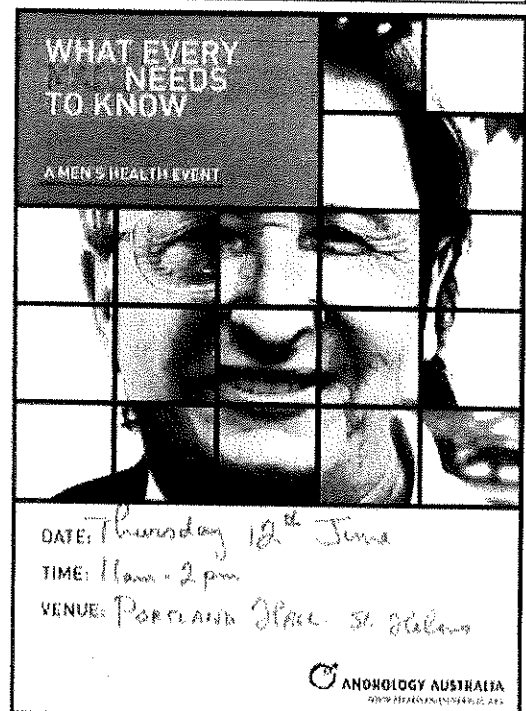 WHAT EVERY
NEEDS
TO KNOW
A MEN'S HEALTH EVENT
DATE: Thursday 12th June
TIME: 11am - 2pm
VENUE: PORTLAND HALL St Helens
ANDROLOGY AUSTRALIA